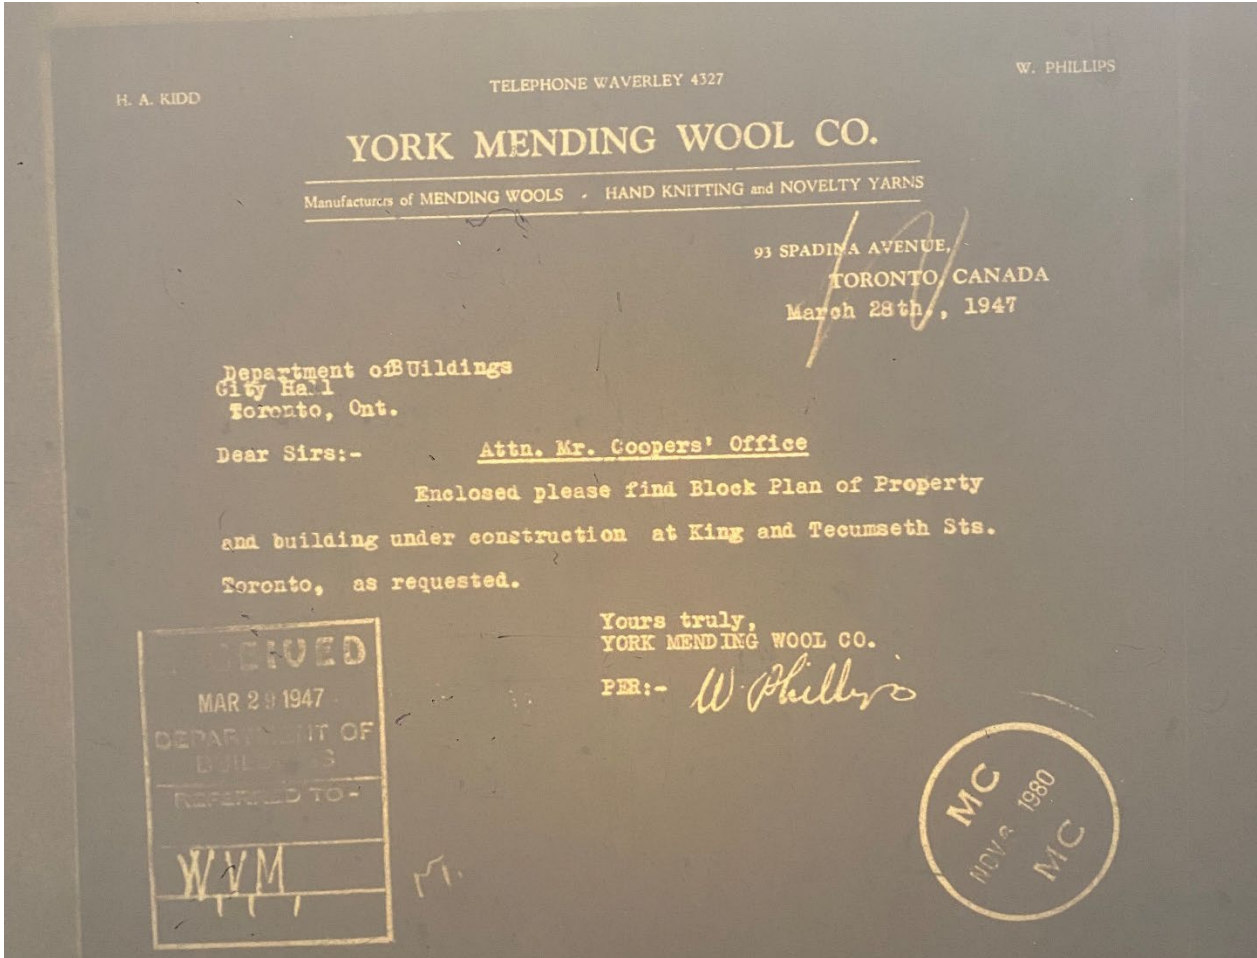 H. A. KIDD
TELEPHONE WAVERLEY 4327
W. PHILLIPS
YORK MENDING WOOL CO.
Manufacturers of MENDING WOOLS - HAND KNITTING and NOVELTY YARNS
93 SPADINA AVENUE,
TORONTO, CANADA
March 28th., 1947
Department ofBUildings
City Hall
Toronto, Ont.
Dear Sirs:- Attn. Mr. Coopers' Office
Enclosed please find Block Plan of Property
and building under construction at King and Tecumseth Sts.
Toronto, as requested.
Yours truly,
YORK MENDING WOOL CO.
PER:- W. Phillips
RECEIVED
MAR 29 1947
DEPARTMENT OF
BUILDINGS
REFERRED TO-
WVM
M.
MC
NOV 1980
MC